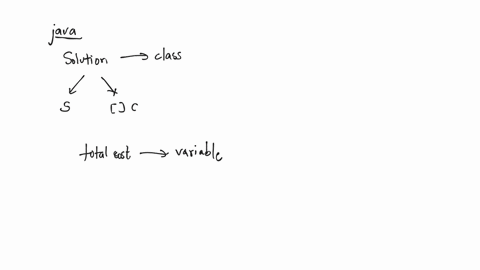 java
Solution → class
S [] C
total cost → variable